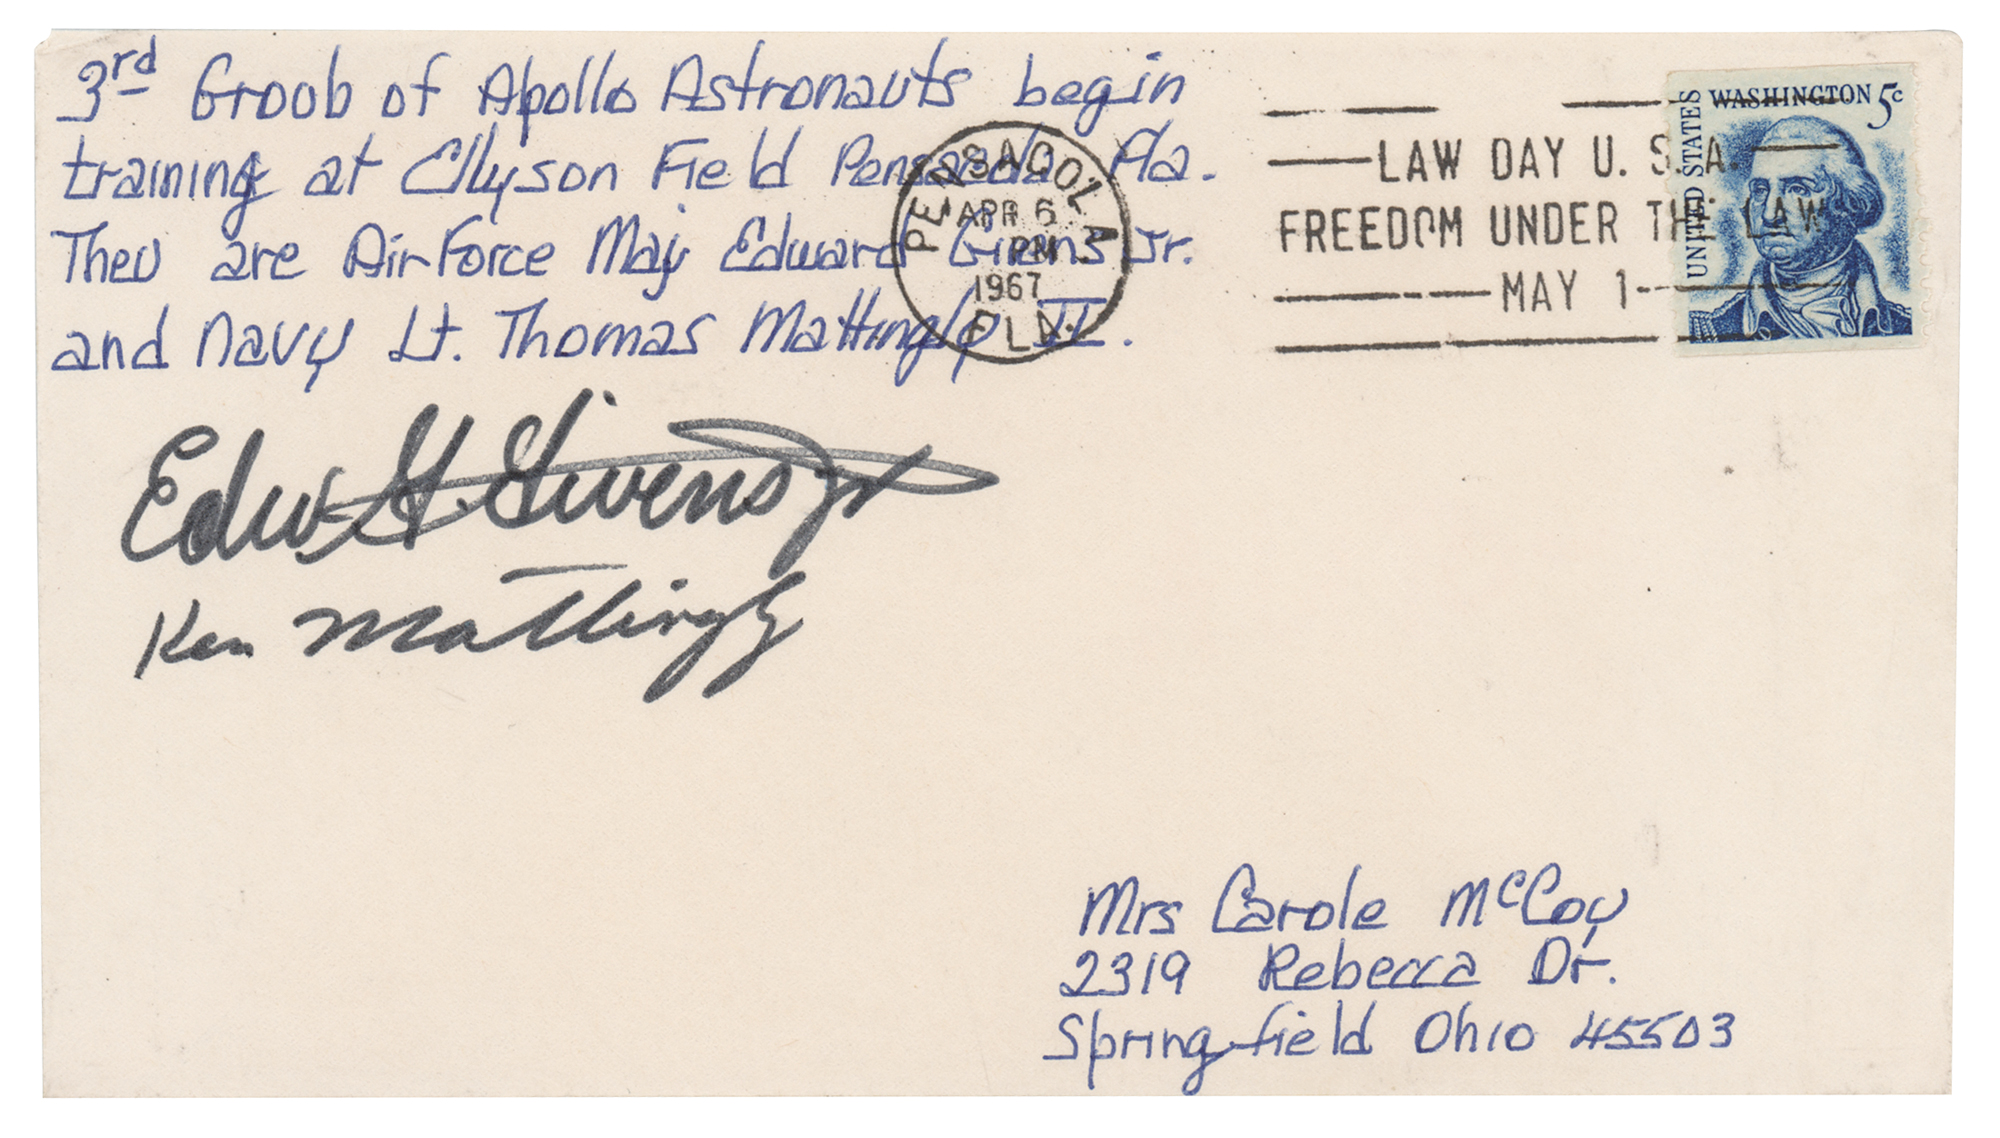 3rd Groob of Apollo Astronauts begin
training at Ellyson Field Pensacola Fla.
They are Air Force Maj Edward Givens Jr.
and Navy Lt. Thomas Mattingly II.
PENSACOLA
APR 6
PM
1967
FLA.
LAW DAY U. S. A.
FREEDOM UNDER THE LAW
MAY 1
WASHINGTON 5c
UNITED STATES
Edw G. Givens Jr
Ken Mattingly
Mrs Carole McCoy
2319 Rebecca Dr.
Springfield Ohio 45503